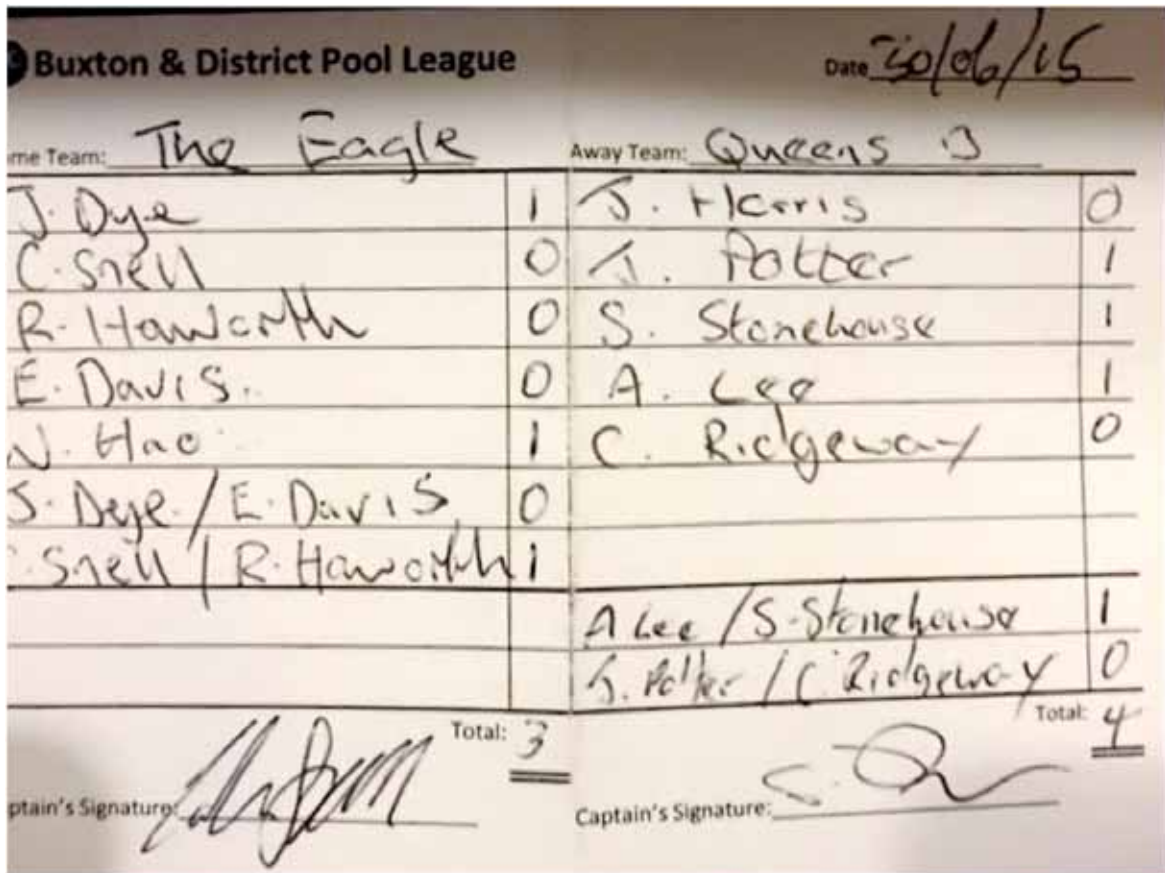 Buxton & District Pool League
Date 30/06/15
me Team: The Eagle
Away Team: Queens B
J. Dye 1 J. Harris 0
C. Snell 0 J. Potter 1
R. Haworth 0 S. Stonehouse 1
E. Davis. 0 A. Lee 1
N. 1 C. Ridgeway 0
J. Dye / E. Davis 0
Snell / R. Haworth 1
A Lee / S. Stonehouse 1
J. Potter / C. Ridgeway 0
Total: 3 Total: 4
ptain's Signature:
Captain's Signature: